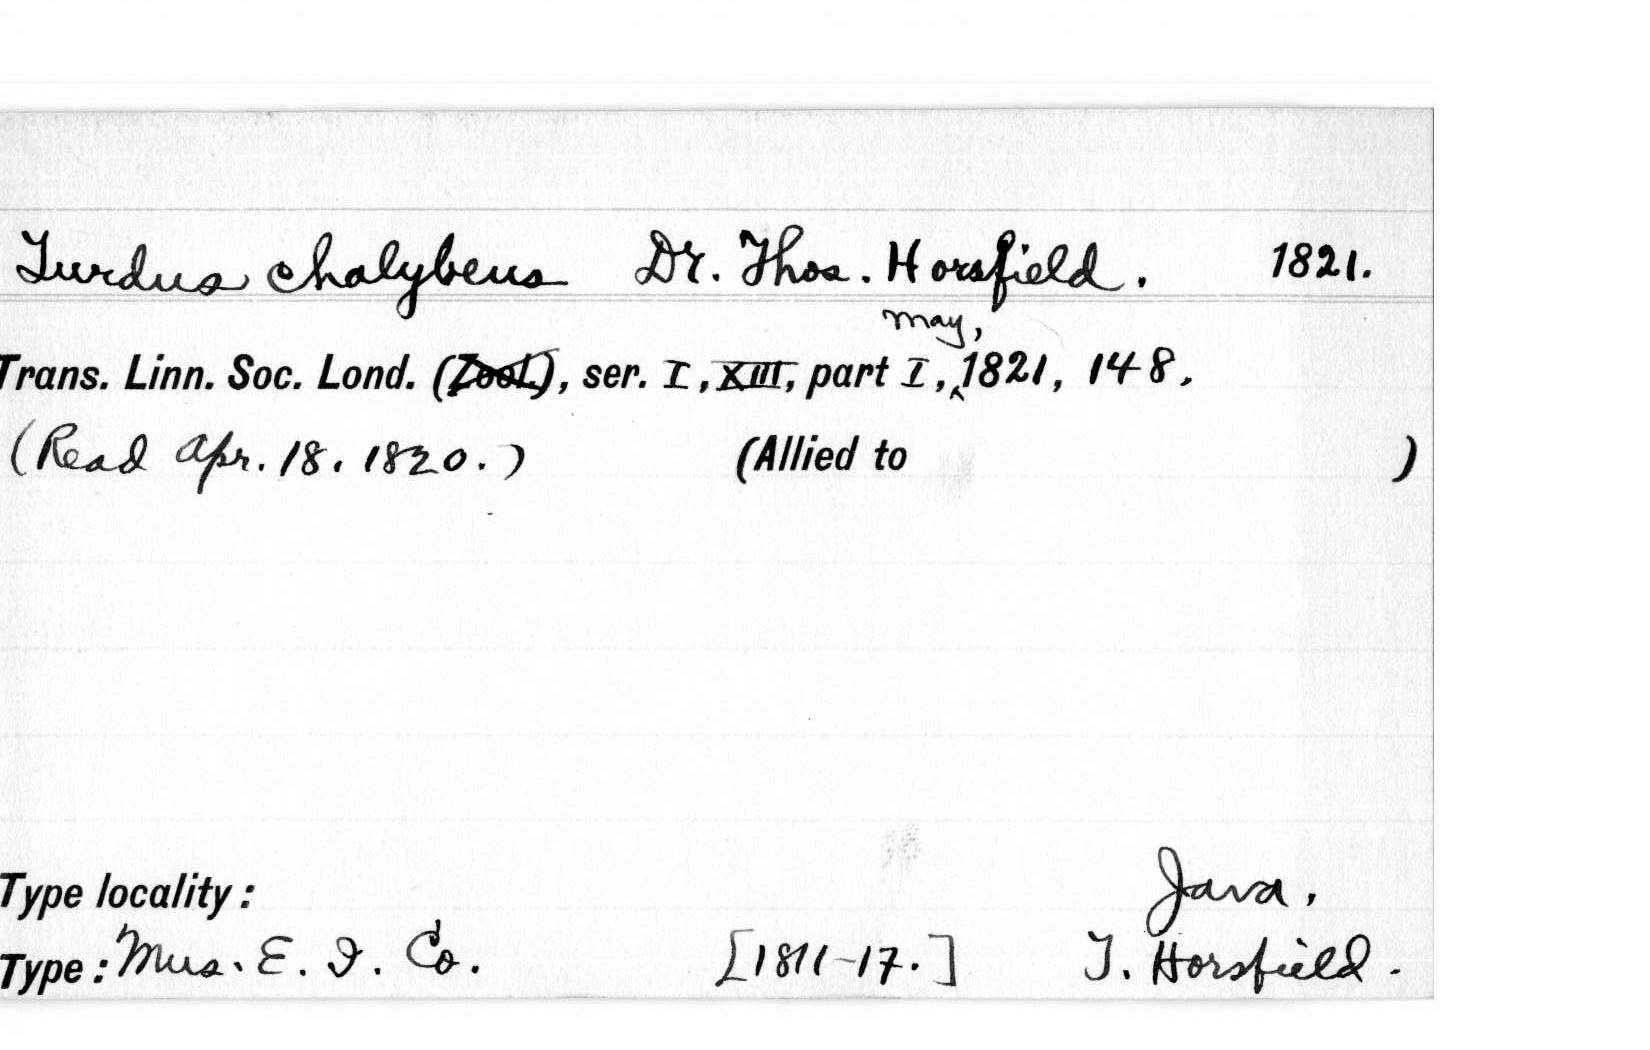 Turdus chalybeus Dr. Thos. Horsfield. 1821.
May,
Trans. Linn. Soc. Lond. (Zool.), ser. I, XIII, part I, ‸1821, 148.
(Read Apr. 18. 1820.) (Allied to )
Type locality: Java.
Type: Mus. E. I. Co. [1811-17.] T. Horsfield.